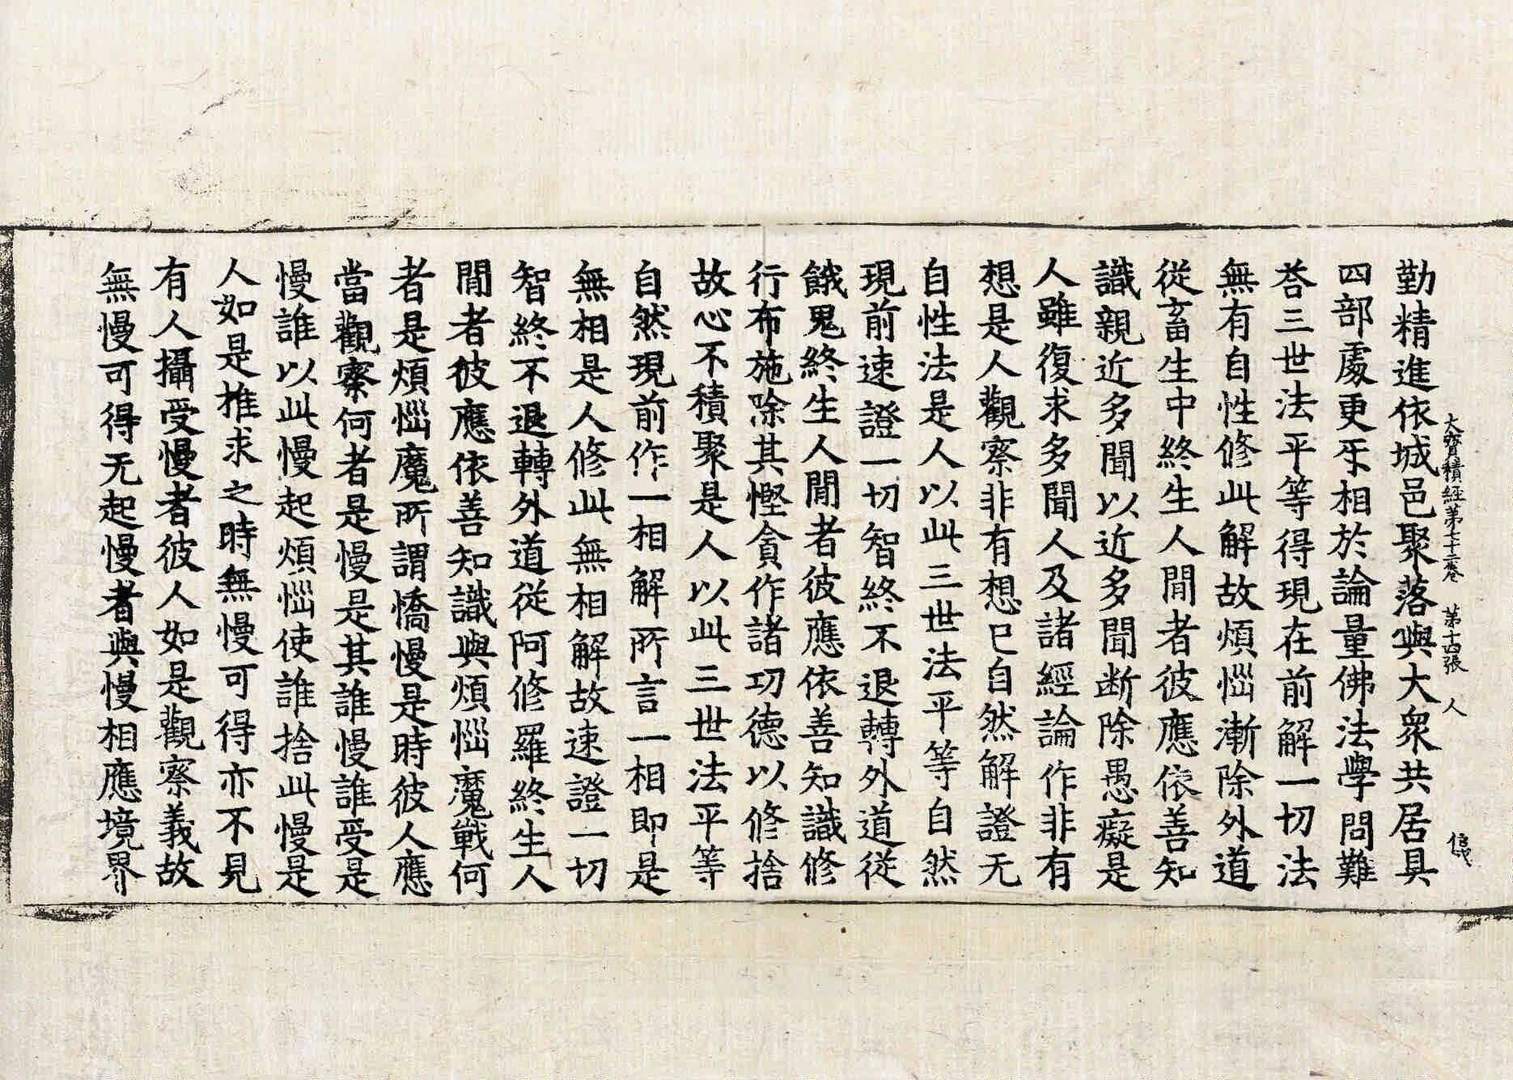 大寶積經第七十二卷　第十四張　人
勤精進依城邑聚落與大衆共居具
四部處更牙相於論量佛法學問難
荅三世法平等得現在前解一切法
無有自性修此解故煩惱漸除外道
從畜生中終生人閒者彼應依善知
識親近多聞以近多聞断除愚癡是
人雖復求多聞人及諸經論作非有
想是人觀察非有想已自然解證无
自性法是人以此三世法平等自然
現前速證一切智終不退轉外道從
餓鬼終生人閒者彼應依善知識修
行布施除其慳貪作諸功德以修捨
故心不積聚是人以此三世法平等
自然現前作一相解所言一相即是
無相是人修此無相解故速證一切
智終不退轉外道從阿修羅終生人
閒者彼應依善知識與煩惱魔戰何
者是煩惱魔所謂憍慢是時彼人應
當觀察何者是慢是其誰慢誰受是
慢誰以此慢起煩惱使誰捨此慢是
人如是推求之時無慢可得亦不見
有人攝受慢者彼人如是觀察義故
無慢可得无起慢者與慢相應境界